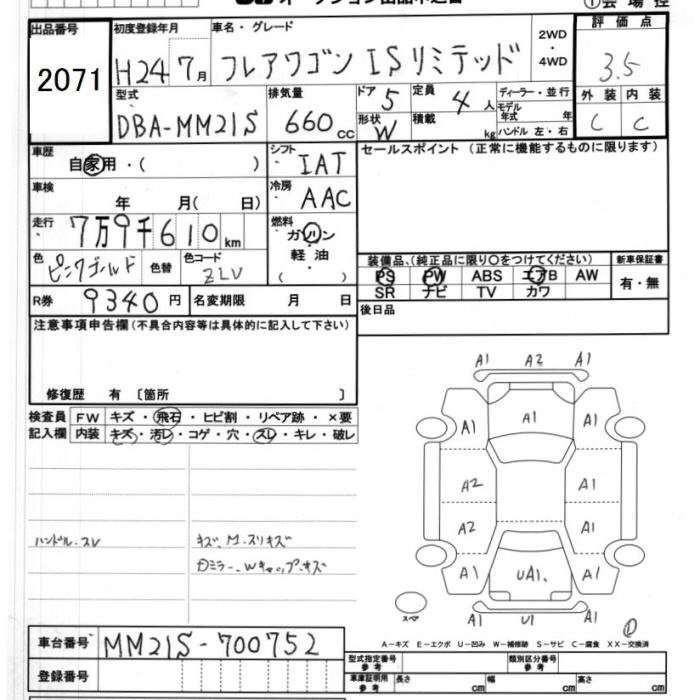 出品番号
2071
初度登録年月
H24 7月
車名・グレード
フレアワゴン ISリミテッド
2WD
・
4WD
評価点
3.5
型式
DBA-MM21S
排気量
660cc
ドア 5
定員 4人
形状 W
積載 kg
ディーラー・並行
モデル年式 年
ハンドル 左・右
外装 内装
C C
車歴
自家用・( )
シフト
IAT
セールスポイント(正常に機能するものに限ります)
車検
年 月( 日)
冷房
AAC
走行
7万9千610km
燃料
ガソリン
軽油
( ・ )
色
ピンクゴールド
色替
色コード
ZLV
装備品、(純正品に限り○をつけてください)
新車保証書
PS PW ABS エアB AW
SR ナビ TV カワ
有・無
R券 9340円
名変期限 月 日
後日品
注意事項申告欄(不具合内容等は具体的に記入して下さい)
修復歴 有 〔箇所 〕
検査員 FW キズ・飛石・ヒビ割・リペア跡・×要
記入欄 内装 キズ・汚レ・コゲ・穴・スレ・キレ・破レ
ハンドル.スレ
キズ、M.スリキズ
Dミラー、Wキャップ.キズ
A1 A2 A1
A1 A1 A1
A2 A1
A2 A1
A1 UA1. A1
A1 U1 A1
スペア
A-キズ E-エクボ U-凹み W-補修跡 S-サビ C-腐食 XX-交換済
車台番号
MM21S-700752
登録番号
型式指定番号 参考
類別区分番号 参考
車庫証明用 参考 長さ cm 幅 cm 高さ cm